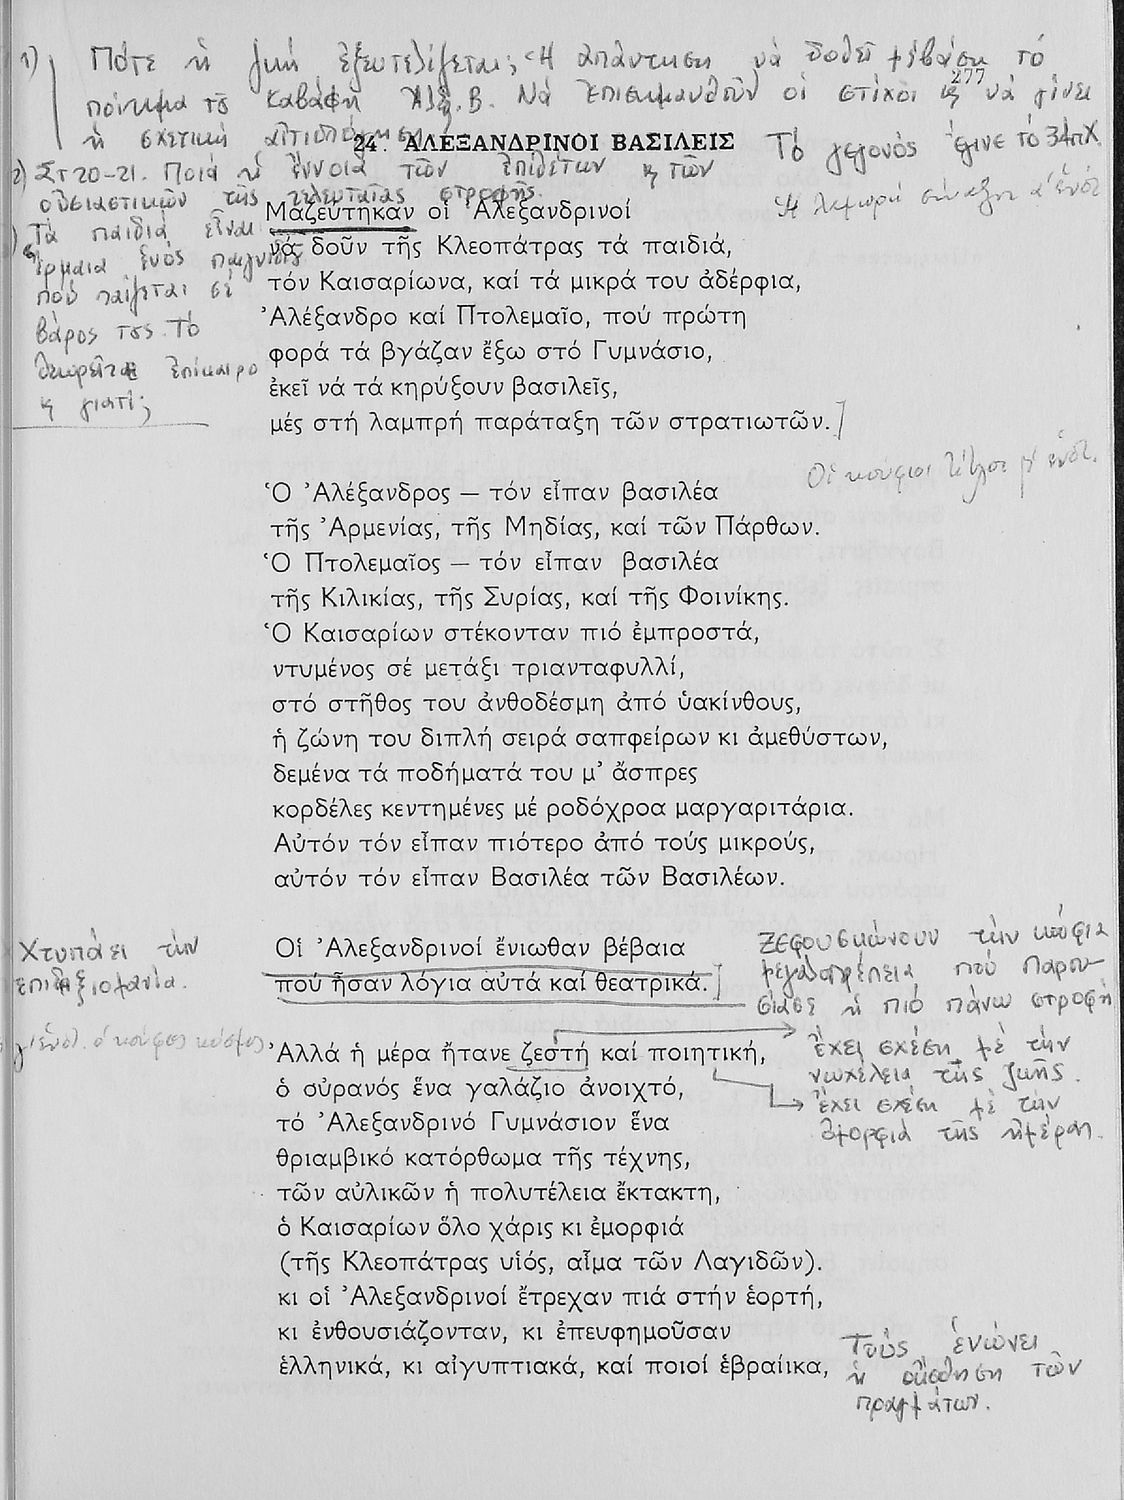 1) Πότε ἡ ζωή ἐξευτελίζεται; Ἡ ἀπάντηση νά δοθεῖ μέ βάση τό
ποίημα τοῦ Καβάφη Ἀλεξ. Β. Νά ἐπισημανθοῦν οἱ στίχοι ϗ νά γίνει
277
ἡ σχετική αἰτιολόγηση
24. ΑΛΕΞΑΝΔΡΙΝΟΙ ΒΑΣΙΛΕΙΣ
Τό γεγονός ἔγινε τό 34πΧ
2) Στ 20-21. Ποιά ἡ ἔννοια τῶν ἐπιθέτων ϗ τῶν
οὐσιαστικῶν τῆς τελευταίας στροφῆς.
Ἡ λαμπρή σύναξη α' ἑνότ
Μαζεύτηκαν οἱ Ἀλεξανδρινοί
νά δοῦν τῆς Κλεοπάτρας τά παιδιά,
τόν Καισαρίωνα, καί τά μικρά του ἀδέρφια,
Ἀλέξανδρο καί Πτολεμαῖο, πού πρώτη
φορά τά βγάζαν ἔξω στό Γυμνάσιο,
ἐκεῖ νά τά κηρύξουν βασιλεῖς,
μές στή λαμπρή παράταξη τῶν στρατιωτῶν.
Τά παιδιά εἶναι
ἕρμαια ἑνός παιγνιδιοῦ
πού παίζεται σέ
βάρος τους. Τό
θεωρεῖτε ἐπίκαιρο
ϗ γιατί;
Οἱ κούφιοι τίτλοι β' ἑνότ.
Ὁ Ἀλέξανδρος — τόν εἶπαν βασιλέα
τῆς Ἀρμενίας, τῆς Μηδίας, καί τῶν Πάρθων.
Ὁ Πτολεμαῖος — τόν εἶπαν βασιλέα
τῆς Κιλικίας, τῆς Συρίας, καί τῆς Φοινίκης.
Ὁ Καισαρίων στέκονταν πιό ἐμπροστά,
ντυμένος σέ μετάξι τριανταφυλλί,
στό στῆθος του ἀνθοδέσμη ἀπό ὑακίνθους,
ἡ ζώνη του διπλή σειρά σαπφείρων κι ἀμεθύστων,
δεμένα τά ποδήματά του μ' ἄσπρες
κορδέλες κεντημένες μέ ροδόχροα μαργαριτάρια.
Αὐτόν τόν εἶπαν πιότερο ἀπό τούς μικρούς,
αὐτόν τόν εἶπαν Βασιλέα τῶν Βασιλέων.
Χτυπάει τήν
ἐπιδειξιομανία.
Οἱ Ἀλεξανδρινοί ἔνιωθαν βέβαια
πού ἦσαν λόγια αὐτά καί θεατρικά.
Ξεφουσκώνουν τήν κούφια
μεγαλοπρέπεια πού παρου-
σίασε ἡ πιό πάνω στροφή
γ' ἑνότ. ὁ κούφος κόσμος
Ἀλλά ἡ μέρα ἤτανε ζεστή καί ποιητική,
ὁ οὐρανός ἕνα γαλάζιο ἀνοιχτό,
τό Ἀλεξανδρινό Γυμνάσιον ἕνα
θριαμβικό κατόρθωμα τῆς τέχνης,
τῶν αὐλικῶν ἡ πολυτέλεια ἔκτακτη,
ὁ Καισαρίων ὅλο χάρις κι ἐμορφιά
(τῆς Κλεοπάτρας υἱός, αἷμα τῶν Λαγιδῶν).
κι οἱ Ἀλεξανδρινοί ἔτρεχαν πιά στήν ἑορτή,
κι ἐνθουσιάζονταν, κι ἐπευφημοῦσαν
ἑλληνικά, κι αἰγυπτιακά, καί ποιοί ἑβραίικα,
ἔχει σχέση μέ τήν
νωχέλεια τῆς ζωῆς.
ἔχει σχέση μέ τήν
ὀμορφιά τῆς ἡμέρας.
Τούς ἑνώνει
ἡ αἴσθηση τῶν
πραγμάτων.